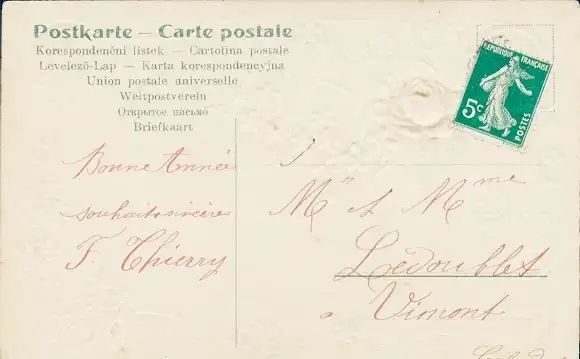 Postkarte – Carte postale
Korespondenční listek – Cartolina postale
Levelező-Lap – Karta korespondencyjna
Union postale universelle
Weltpostverein
Открытое письмо
Briefkaart
REPUBLIQUE FRANÇAISE
5c
POSTES
Bonne Année
souhaits sincères
F. Thierry
Mr et Mme
Ledoublet
a Vimont